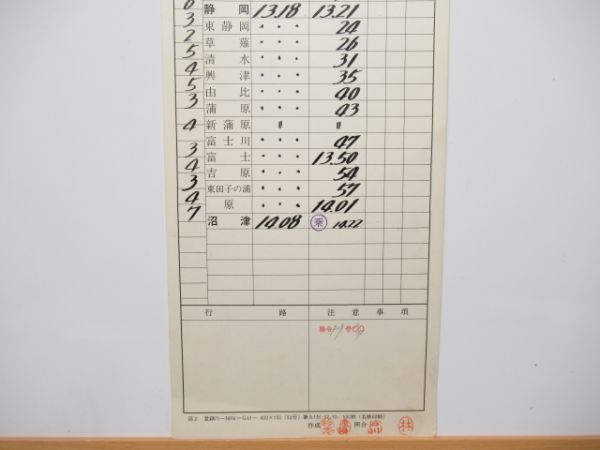 6 静岡 13.18 13.21
3 東静岡 ・・・ 24
2 草薙 ・・・ 26
5 清水 ・・・ 31
4 興津 ・・・ 35
5 由比 ・・・ 40
3 蒲原 ・・・ 43
新蒲原 〃 〃
4 富士川 ・・・ 47
3 富士 ・・・ 13.50
4 吉原 ・・・ 54
3 東田子の浦 ・・・ 57
4 原 ・・・ 14.01
7 沼津 14.08 乗 14.22
行路 注意事項
作成 照合 林